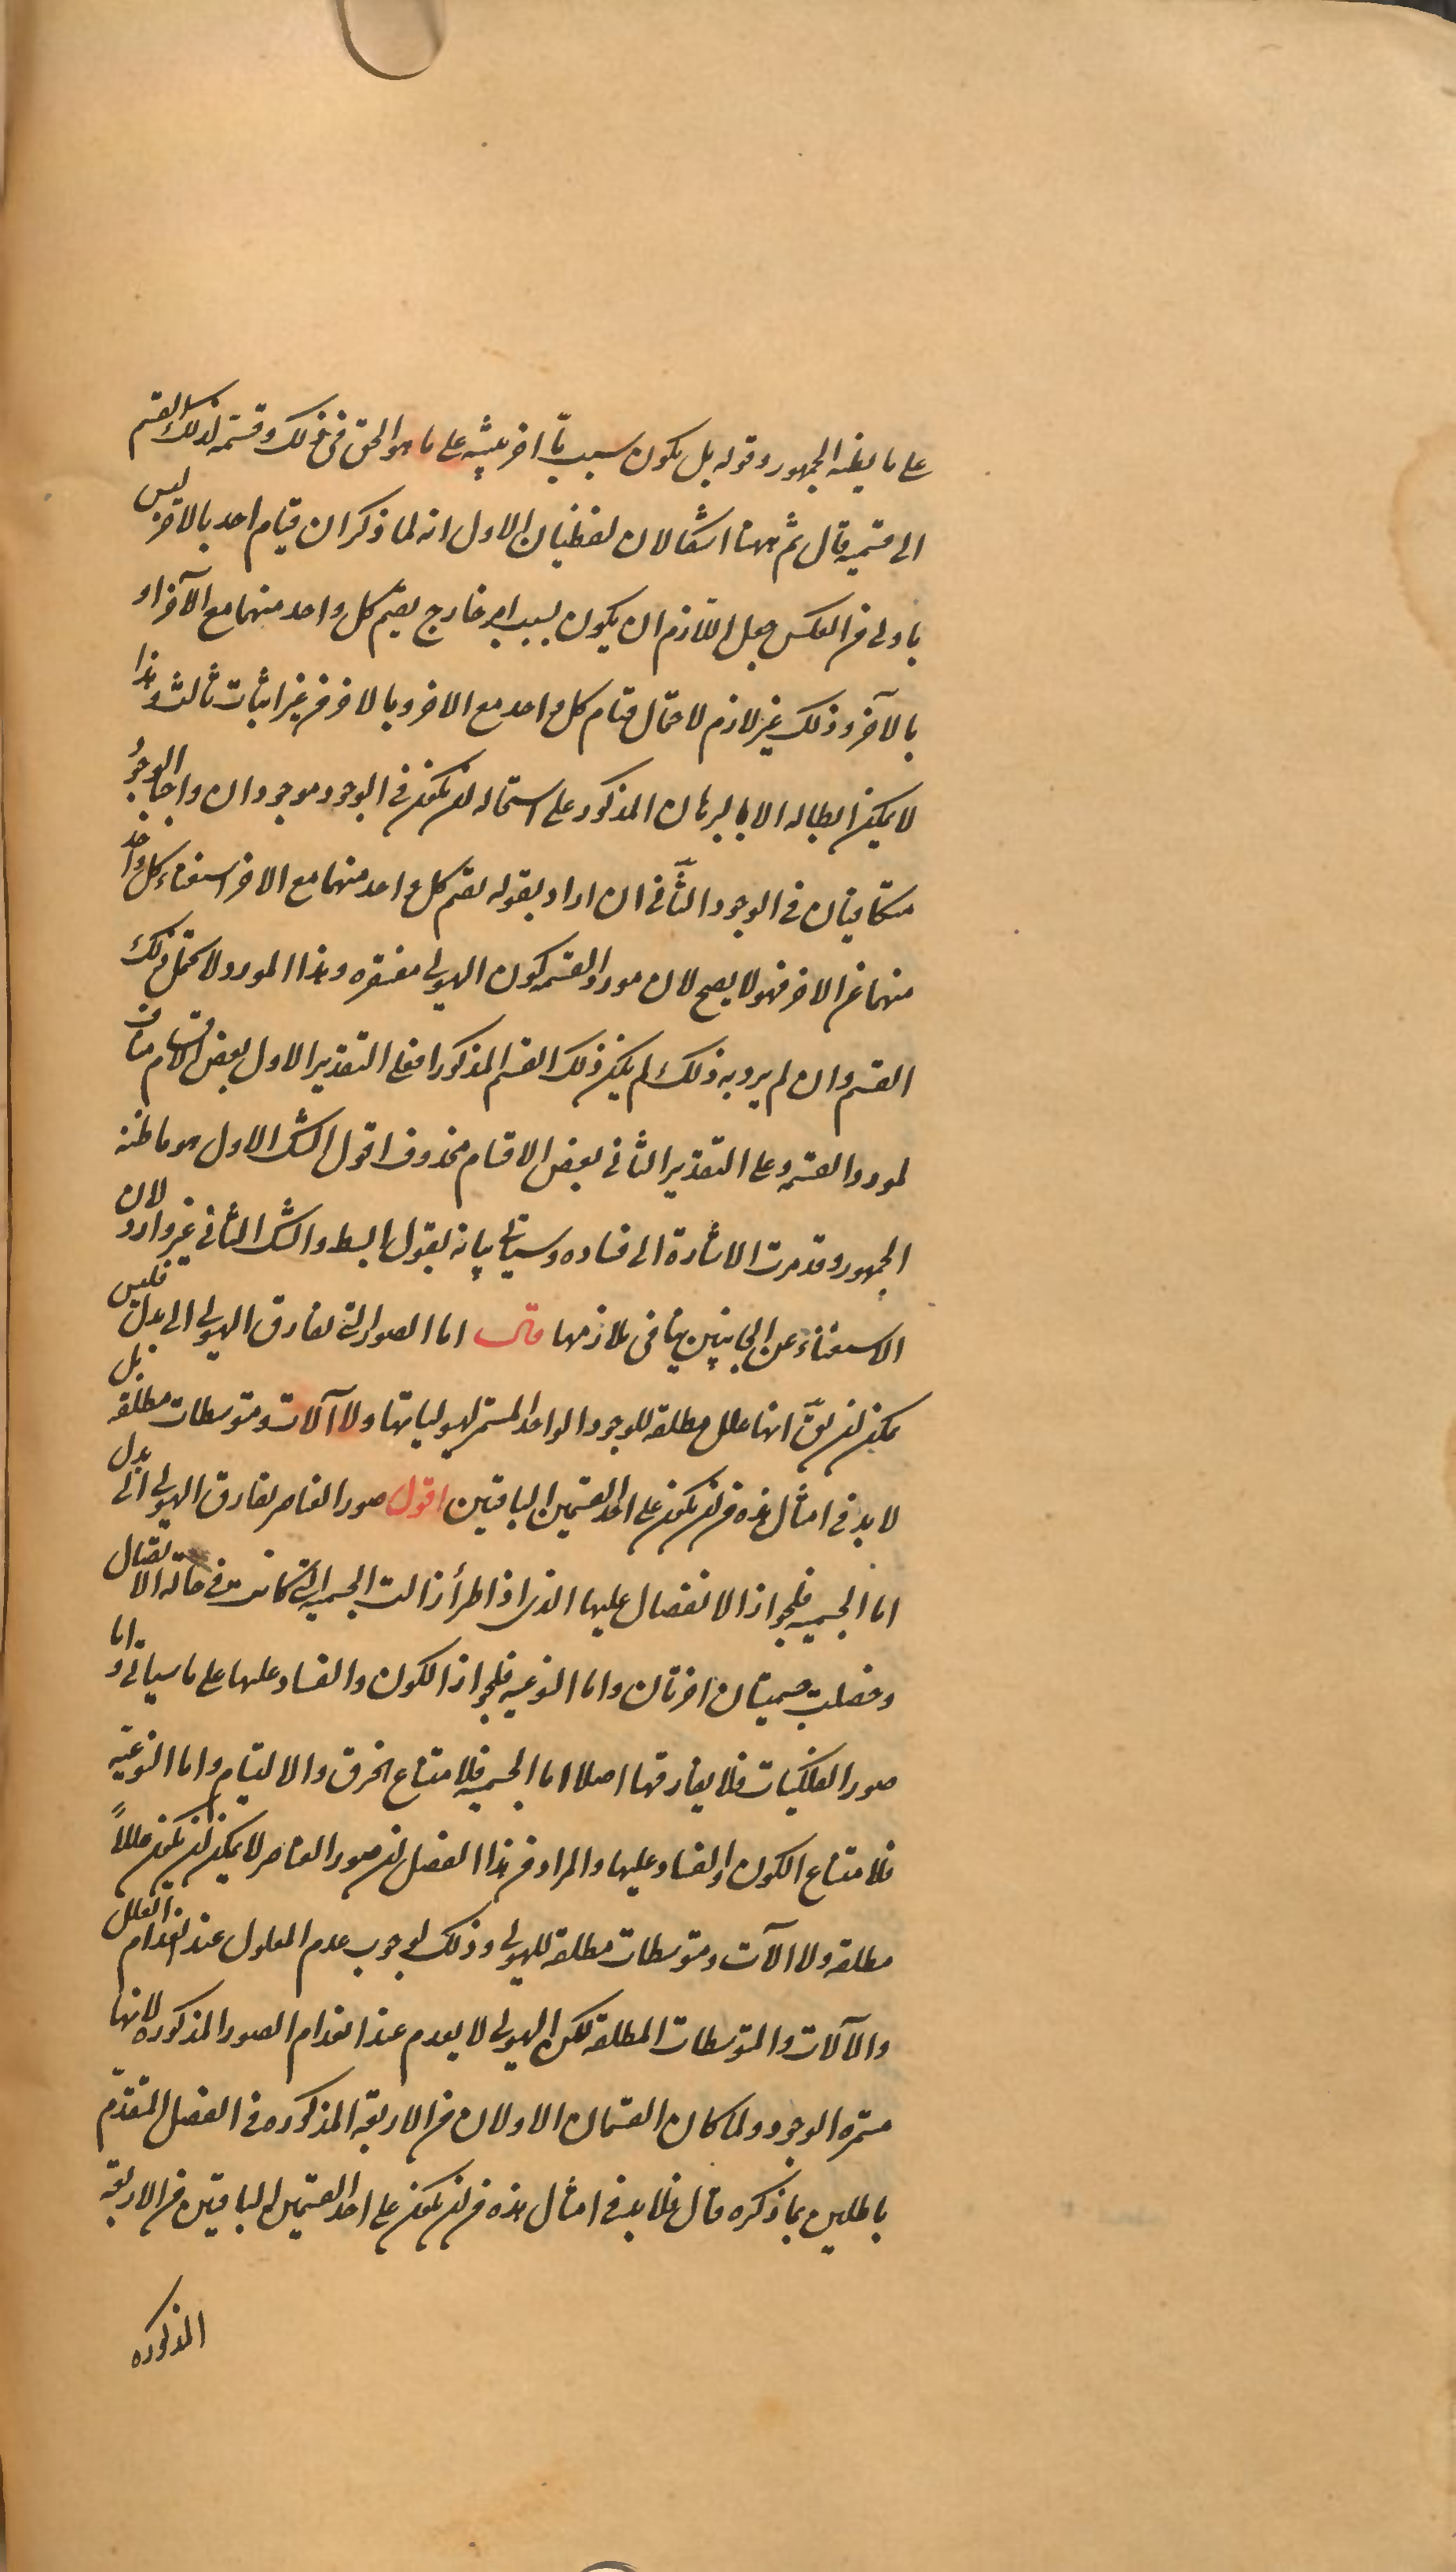 على ما يظنه الجمهور وقوله بل يكون سبب ما آخر عينه على ما هو الحق في ذلك وقسمة لذلك القسم
الى قسميه قال ثم ههنا اشكالان لفظيان الاول انه لما ذكر ان قيام احد بالآخر ليس
باولى من العكس جعل اللازم ان يكون بسبب امر خارج يقيم كل واحد منهما مع الآخر او
بالآخر وذلك غير لازم لاحتمال قيام كل واحد مع الاخر وبالاخر من غير اثبات ثالث وهذا
لا يمكن ابطاله الا بالبرهان المذكور على استحاله ان يكون في الوجود موجودان واجبا الوجود
متكافيان في الوجود الثاني ان اراد بقوله يقيم كل واحد منهما مع الاخر استغناء كل واحد
منهما عن الاخر فهو لا يصح لان مورد القسمه كون الهيولى مفتقره وهذا المورد لا يحتمل ذلك
القسم وان لم يرد به ذلك لم يكن ذلك القسم المذكورا فعلى التقدير الاول بعض الاقسام مناف
لمورد القسمه وعلى التقدير الثاني بعض الاقسام محذوف اقول الشك الاول هو ما ظنه
الجمهور وقد مرت الاشارة الى فساده وسياتي بيانه بقول ابسط والشك الثاني غير وارد لان
الاستغناء عن الجانبين ينافي تلازمهما قال اما الصور التي تفارق الهيولى الى بدل فليس
يمكن ان يقال انها علل مطلقه للوجود الواحد المستمر لهيولياتها ولا آلات ومتوسطات مطلقه بل
لا بد في امثال هذه من ان يكون على احد القسمين الباقيين اقول صور العناصر تفارق الهيولى الى بدل
اما الجسميه فلجواز الانفصال عليها الذي اذا طرأ زالت الجسميه التي كانت في حاله الاتصال
وحصلت جسميتان اخرتان واما النوعيه فلجواز الكون والفساد عليها على ما سياتي واما
صور الفلكيات فلا يفارقها اصلا اما الجسميه فلامتناع الخرق والالتيام واما النوعيه
فلامتناع الكون والفساد عليها والمراد من هذا الفصل ان صور العناصر لا يمكن ان يكون عللاً
مطلقه ولا الآت ومتوسطات مطلقه للهيولى وذلك لوجوب عدم المعلول عند انعدام العلل
والآلات والمتوسطات المطلقه لكن الهيولى لا يعدم عند انعدام الصور المذكوره لانها
مستمره الوجود ولما كان القسمان الاولان من الاربعة المذكوره في الفصل المتقدم
باطلين بما ذكره قال فلا بد في امثال هذه من ان يكون على احد القسمين الباقيين من الاربعة
المذكوره